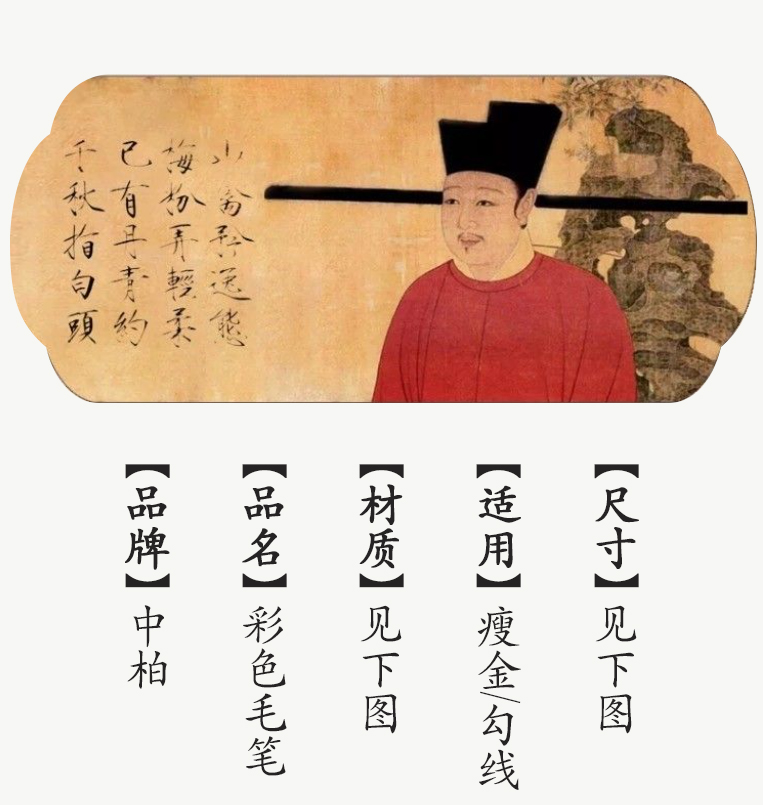 山禽矜逸態
梅粉弄輕柔
已有丹青約
千秋指白頭
【品牌】中柏
【品名】彩色毛笔
【材质】见下图
【适用】瘦金/勾线
【尺寸】见下图